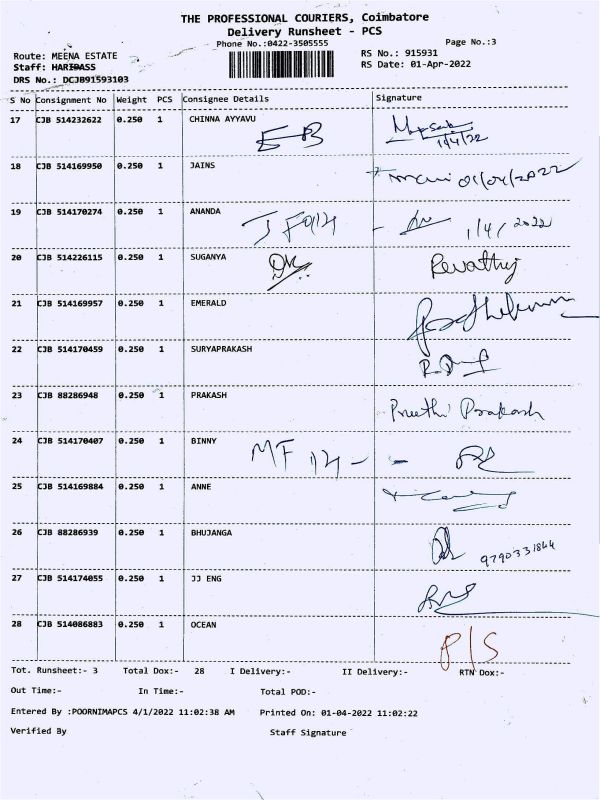 THE PROFESSIONAL COURIERS, Coimbatore
Delivery Runsheet - PCS
Phone No.:0422-3505555 Page No.:3
Route: MEENA ESTATE RS No.: 915931
Staff: HARIDASS RS Date: 01-Apr-2022
DRS No.: DCJB91593103
S No Consignment No Weight PCS Consignee Details Signature
17 CJB 514232622 0.250 1 CHINNA AYYAVU
1/4/22
18 CJB 514169950 0.250 1 JAINS
01/04/2022
19 CJB 514170274 0.250 1 ANANDA
1/4/2022
20 CJB 514226115 0.250 1 SUGANYA Revathy
21 CJB 514169957 0.250 1 EMERALD
22 CJB 514170459 0.250 1 SURYAPRAKASH
23 CJB 88286948 0.250 1 PRAKASH
Preethi Prakash
24 CJB 514170407 0.250 1 BINNY
MF
25 CJB 514169884 0.250 1 ANNE
26 CJB 88286939 0.250 1 BHUJANGA
9790331864
27 CJB 514174055 0.250 1 JJ ENG
28 CJB 514086883 0.250 1 OCEAN
P/S
Tot. Runsheet:- 3 Total Dox:- 28 I Delivery:- II Delivery:- RTN Dox:-
Out Time:- In Time:- Total POD:-
Entered By :POORNIMAPCS 4/1/2022 11:02:38 AM Printed On: 01-04-2022 11:02:22
Verified By Staff Signature